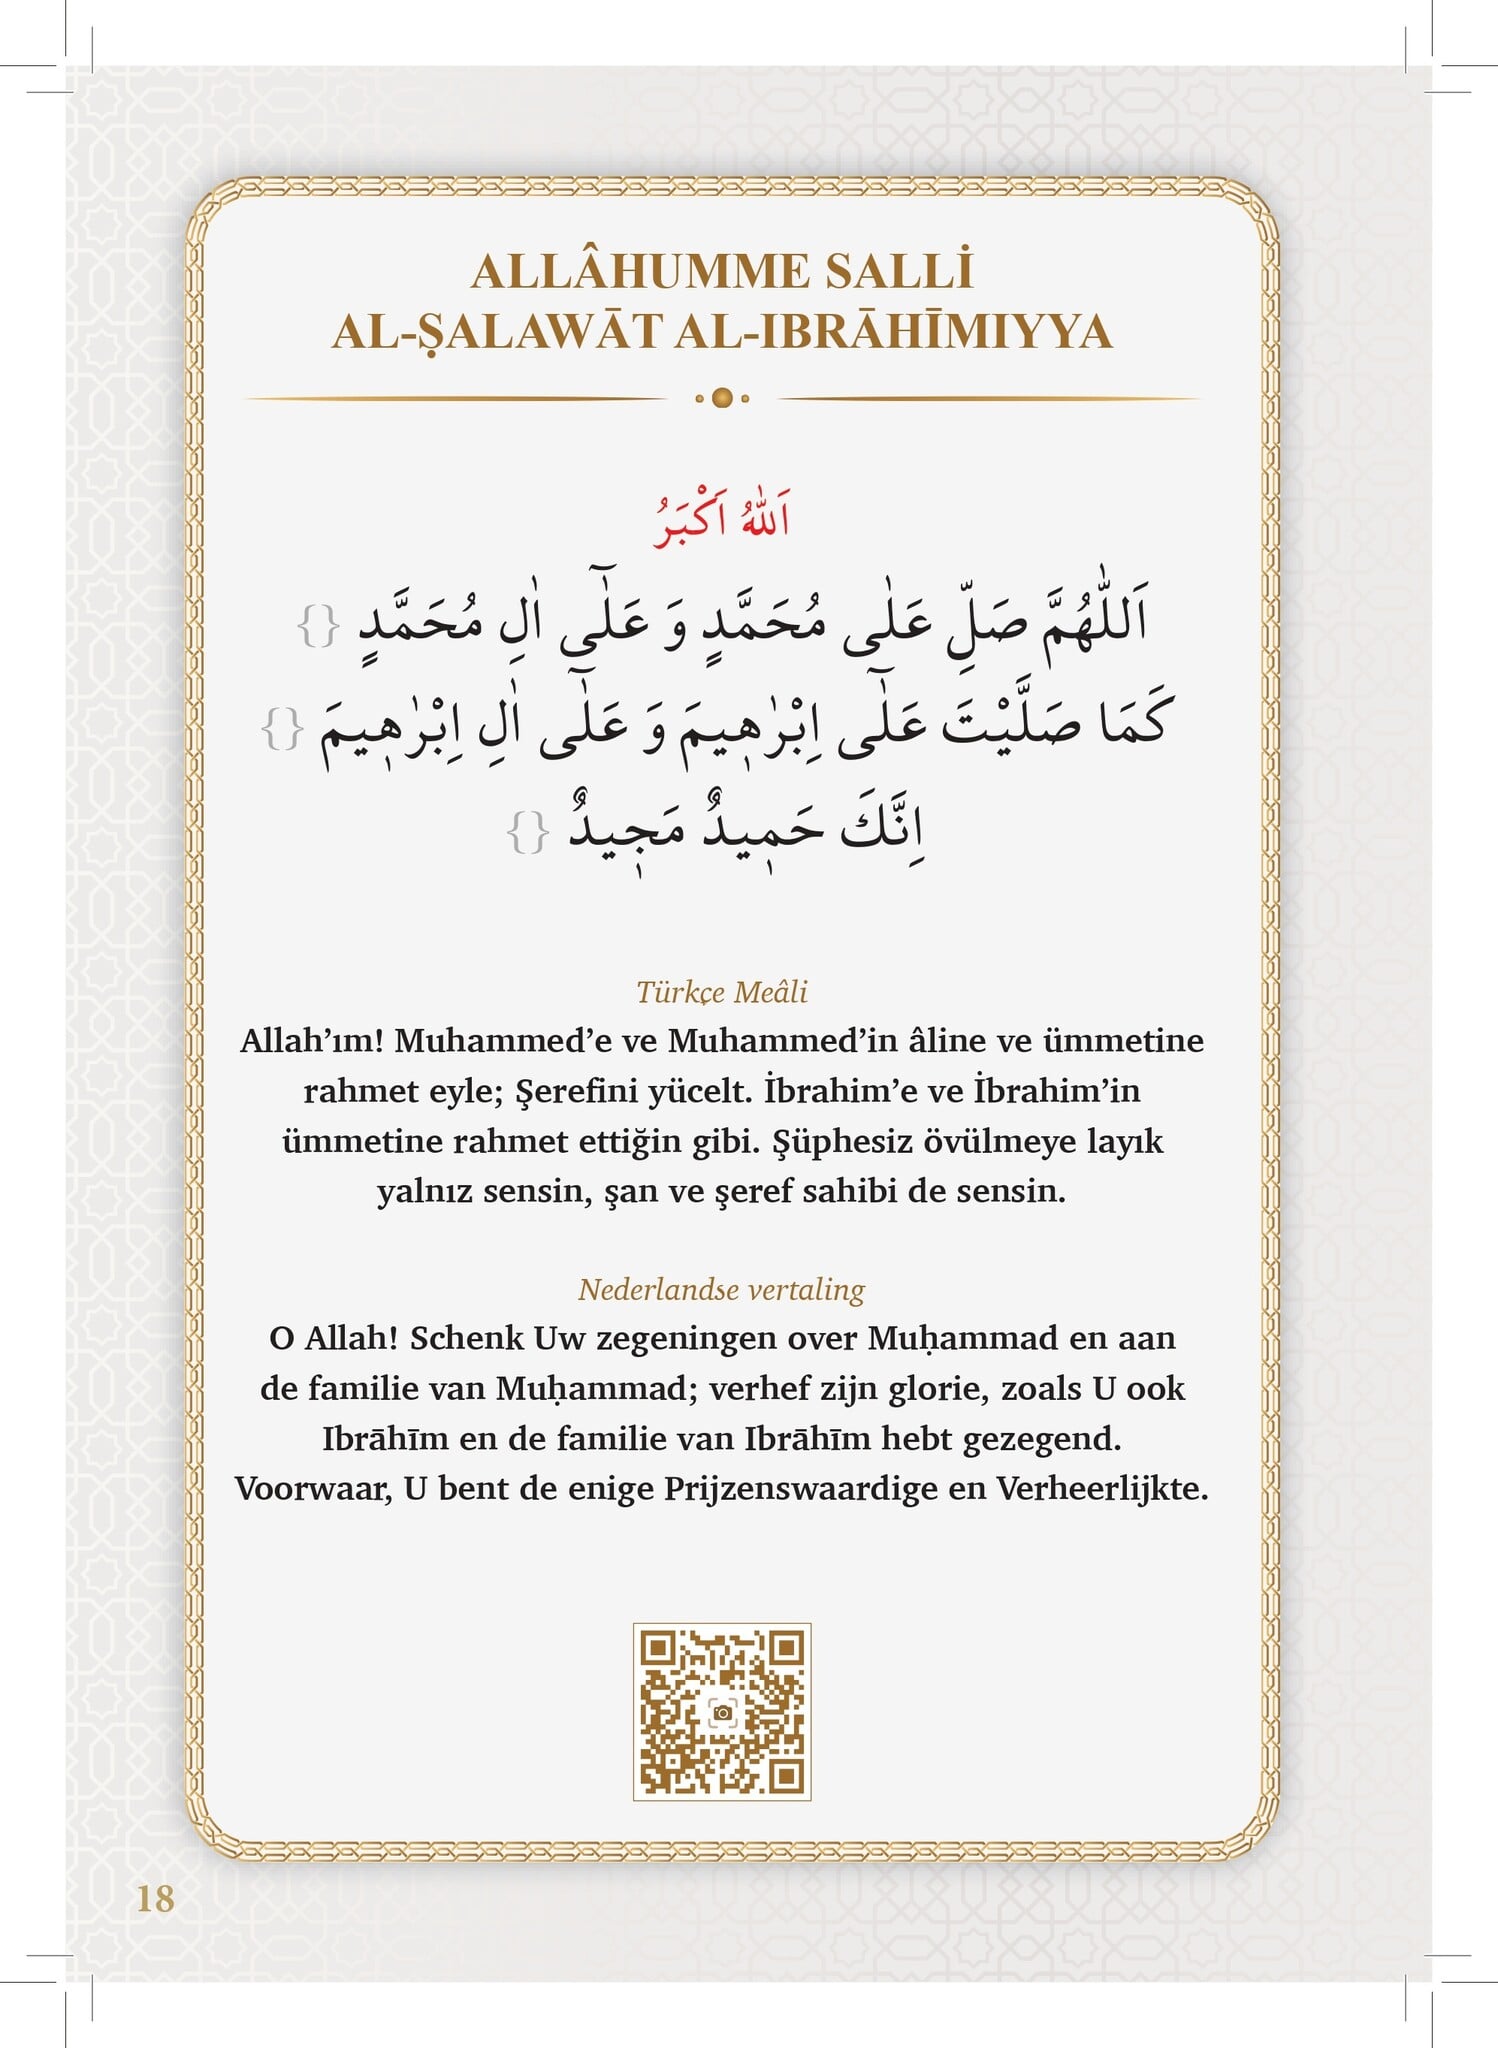 ALLÂHUMME SALLİ
AL-ṢALAWĀT AL-IBRĀHĪMIYYA
اَللّٰهُ اَكْبَرُ
اَللّٰهُمَّ صَلِّ عَلٰى مُحَمَّدٍ وَ عَلٰٓى اٰلِ مُحَمَّدٍ {}
كَمَا صَلَّيْتَ عَلٰٓى اِبْرٰه۪يمَ وَ عَلٰٓى اٰلِ اِبْرٰه۪يمَ {}
اِنَّكَ حَم۪يدٌ مَج۪يدٌ {}
Türkçe Meâli
Allah’ım! Muhammed’e ve Muhammed’in âline ve ümmetine
rahmet eyle; Şerefini yücelt. İbrahim’e ve İbrahim’in
ümmetine rahmet ettiğin gibi. Şüphesiz övülmeye layık
yalnız sensin, şan ve şeref sahibi de sensin.
Nederlandse vertaling
O Allah! Schenk Uw zegeningen over Muḥammad en aan
de familie van Muḥammad; verhef zijn glorie, zoals U ook
Ibrāhīm en de familie van Ibrāhīm hebt gezegend.
Voorwaar, U bent de enige Prijzenswaardige en Verheerlijkte.
18